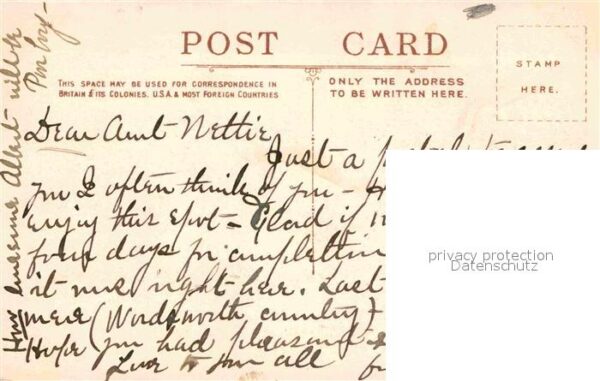 POST CARD
THIS SPACE MAY BE USED FOR CORRESPONDENCE IN
BRITAIN & ITS COLONIES, U.S.A. & MOST FOREIGN COUNTRIES
ONLY THE ADDRESS
TO BE WRITTEN HERE.
STAMP
HERE.
Dear Aunt Nettie
Just a postal to
you I often think of you —
enjoy this spot — Glad if
four days for
it was right here. Last
mere (Wordsworth country)
Hope you had pleasant
Love to you all
How Albert will be
privacy protection
Datenschutz